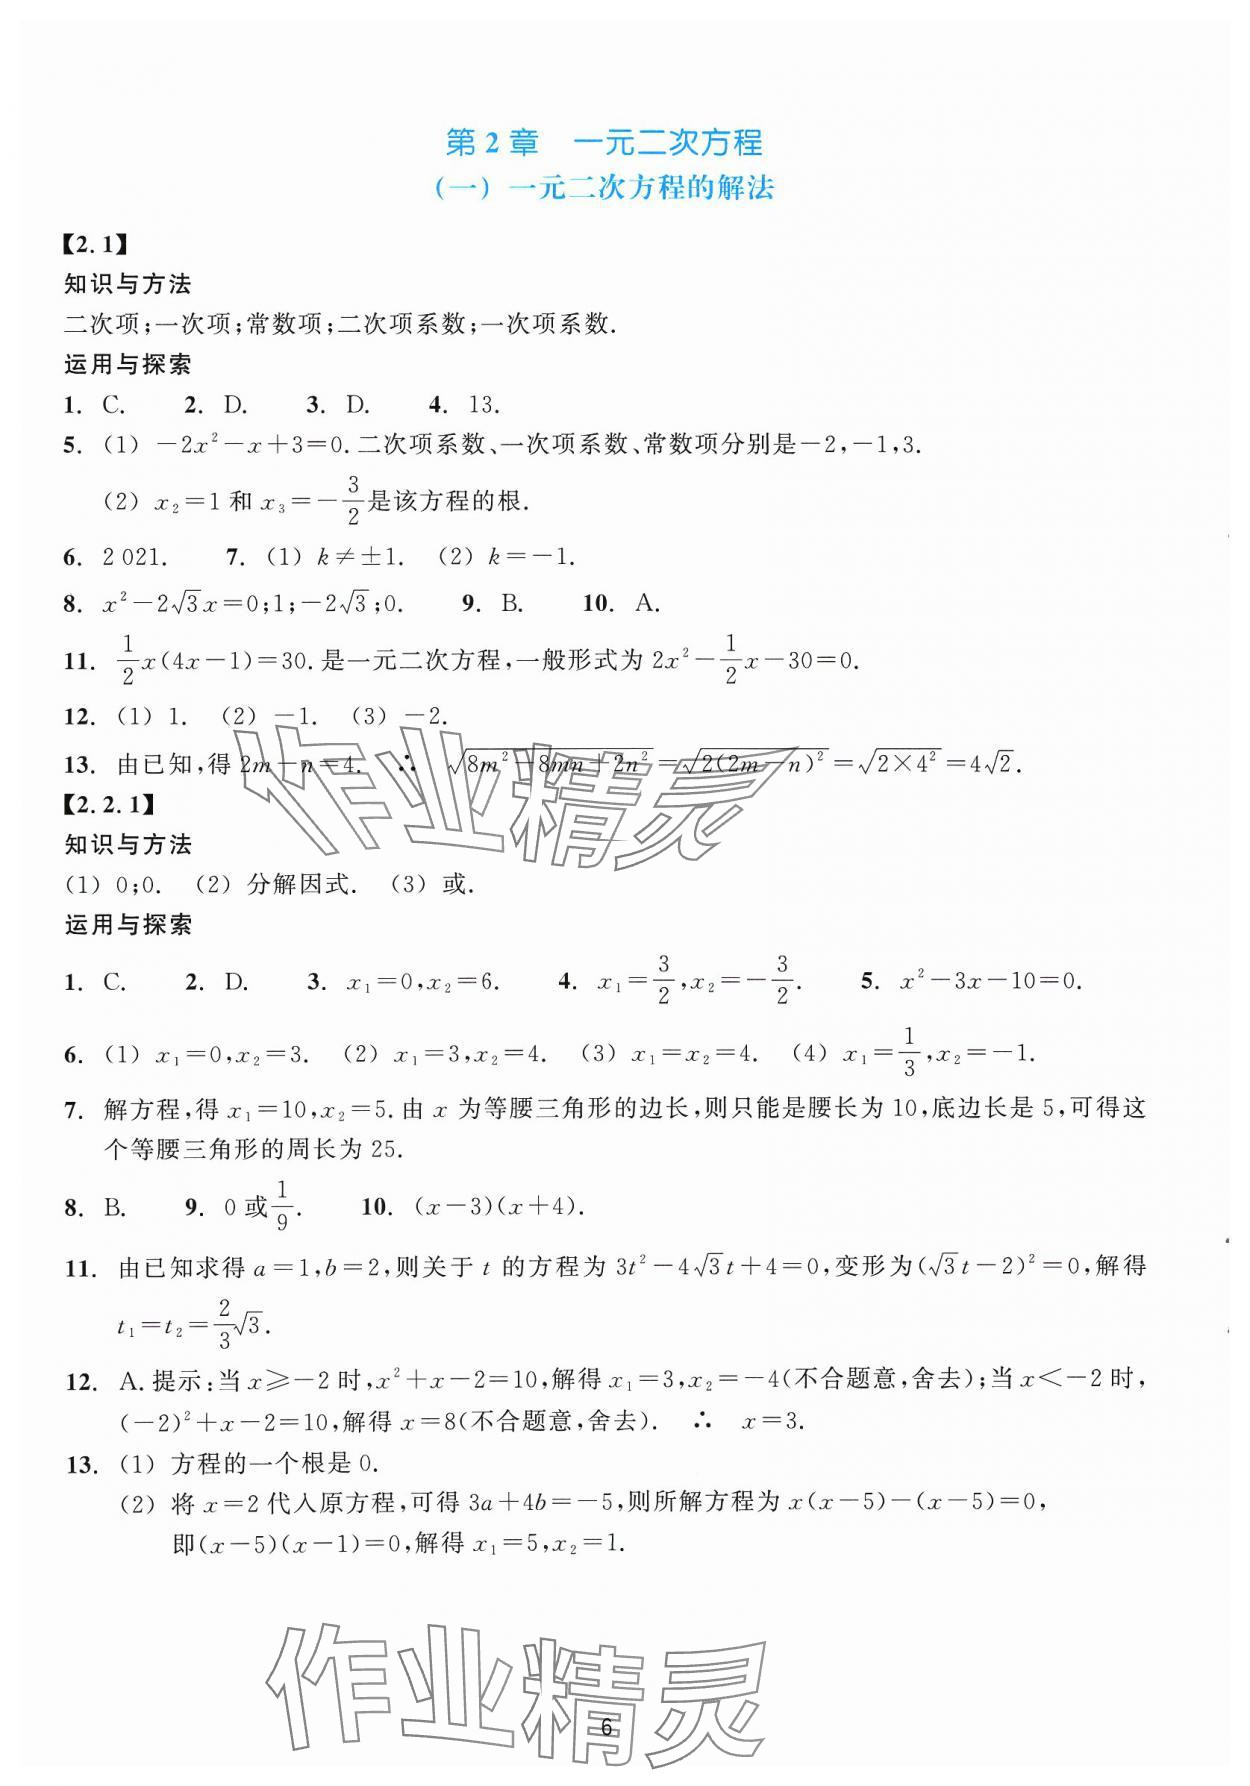 第 2 章　一元二次方程
(一) 一元二次方程的解法
【2.1】
知识与方法
二次项;一次项;常数项;二次项系数;一次项系数.
运用与探索
1. C.　2. D.　3. D.　4. 13.
5. (1) −2x²−x+3=0.二次项系数、一次项系数、常数项分别是−2,−1,3.
(2) x₂=1 和 x₃=−3/2是该方程的根.
6. 2 021.　7. (1) k≠±1.　(2) k=−1.
8. x²−2√3x=0;1;−2√3;0.　9. B.　10. A.
11. 1/2x(4x−1)=30.是一元二次方程,一般形式为 2x²−1/2x−30=0.
12. (1) 1.　(2) −1.　(3) −2.
13. 由已知,得 2m−n=4.　∴　√(8m²−8mn+2n²)=√(2(2m−n)²)=√(2×4²)=4√2.
【2.2.1】
知识与方法
(1) 0;0.　(2) 分解因式.　(3) 或.
运用与探索
1. C.　2. D.　3. x₁=0,x₂=6.　4. x₁=3/2,x₂=−3/2.　5. x²−3x−10=0.
6. (1) x₁=0,x₂=3.　(2) x₁=3,x₂=4.　(3) x₁=x₂=4.　(4) x₁=1/3,x₂=−1.
7. 解方程,得 x₁=10,x₂=5.由 x 为等腰三角形的边长,则只能是腰长为 10,底边长是 5,可得这
个等腰三角形的周长为 25.
8. B.　9. 0 或1/9.　10. (x−3)(x+4).
11. 由已知求得 a=1,b=2,则关于 t 的方程为 3t²−4√3t+4=0,变形为(√3t−2)²=0,解得
t₁=t₂=2/3√3.
12. A.提示:当 x⩾−2 时,x²+x−2=10,解得 x₁=3,x₂=−4(不合题意,舍去);当 x<−2 时,
(−2)²+x−2=10,解得 x=8(不合题意,舍去).　∴　x=3.
13. (1) 方程的一个根是 0.
(2) 将 x=2 代入原方程,可得 3a+4b=−5,则所解方程为 x(x−5)−(x−5)=0,
即(x−5)(x−1)=0,解得 x₁=5,x₂=1.
作业精灵
作业精灵
6